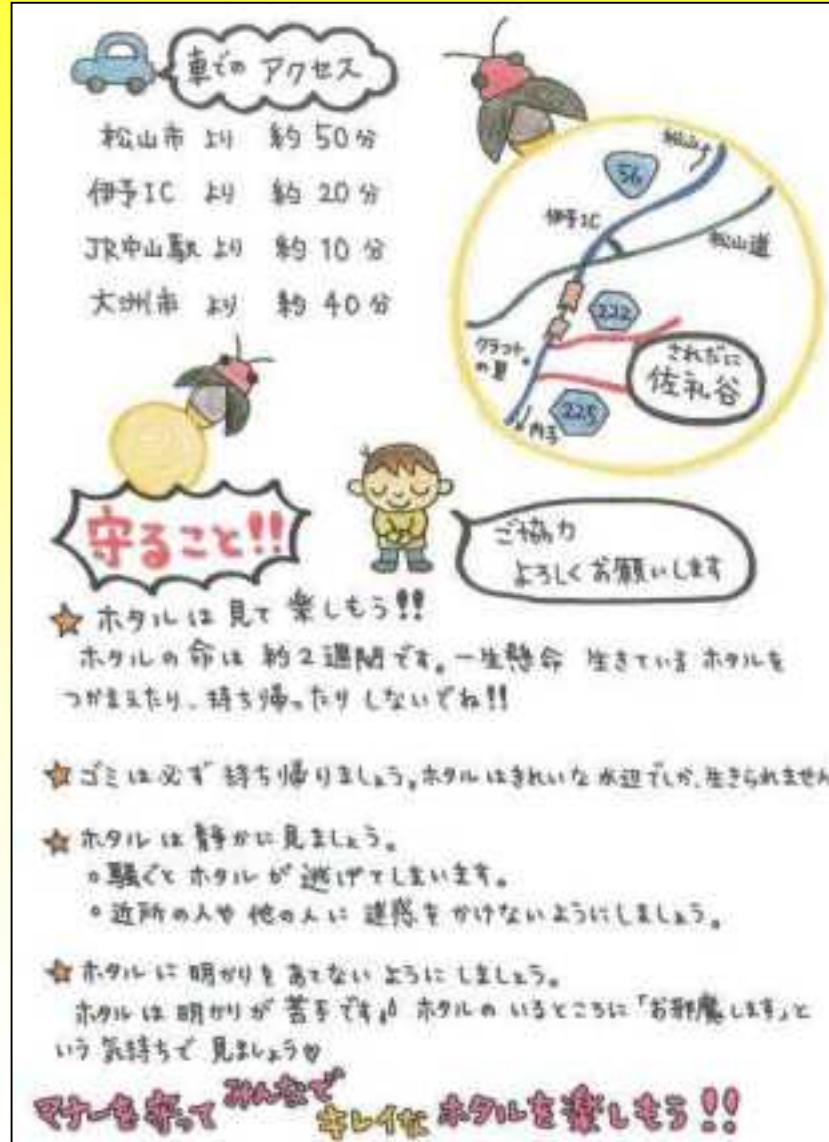 車での アクセス
松山市 より 約 50 分
伊予IC より 約 20 分
JR中山駅 より 約 10 分
大洲市 より 約 40 分
松山
56
伊予IC
松山道
222
クラフト
の里
されだに
佐礼谷
225
内子
守ること!!
ご協力
よろしくお願いします
ホタルは見て楽しもう!!
ホタルの命は約2週間です。一生懸命 生きているホタルを
つかまえたり、持ち帰ったりしないでね!!
ゴミは必ず持ち帰りましょう。ホタルはきれいな水辺でしか、生きられません
ホタルは静かに見ましょう。
○騒ぐとホタルが逃げてしまいます。
○近所の人や他の人に迷惑をかけないようにしましょう。
ホタルに明かりをあてないようにしましょう。
ホタルは明かりが苦手です。ホタルのいるところに「お邪魔します」と
いう気持ちで見ましょう♡
マナーを守ってみんなでキレイなホタルを楽しもう!!